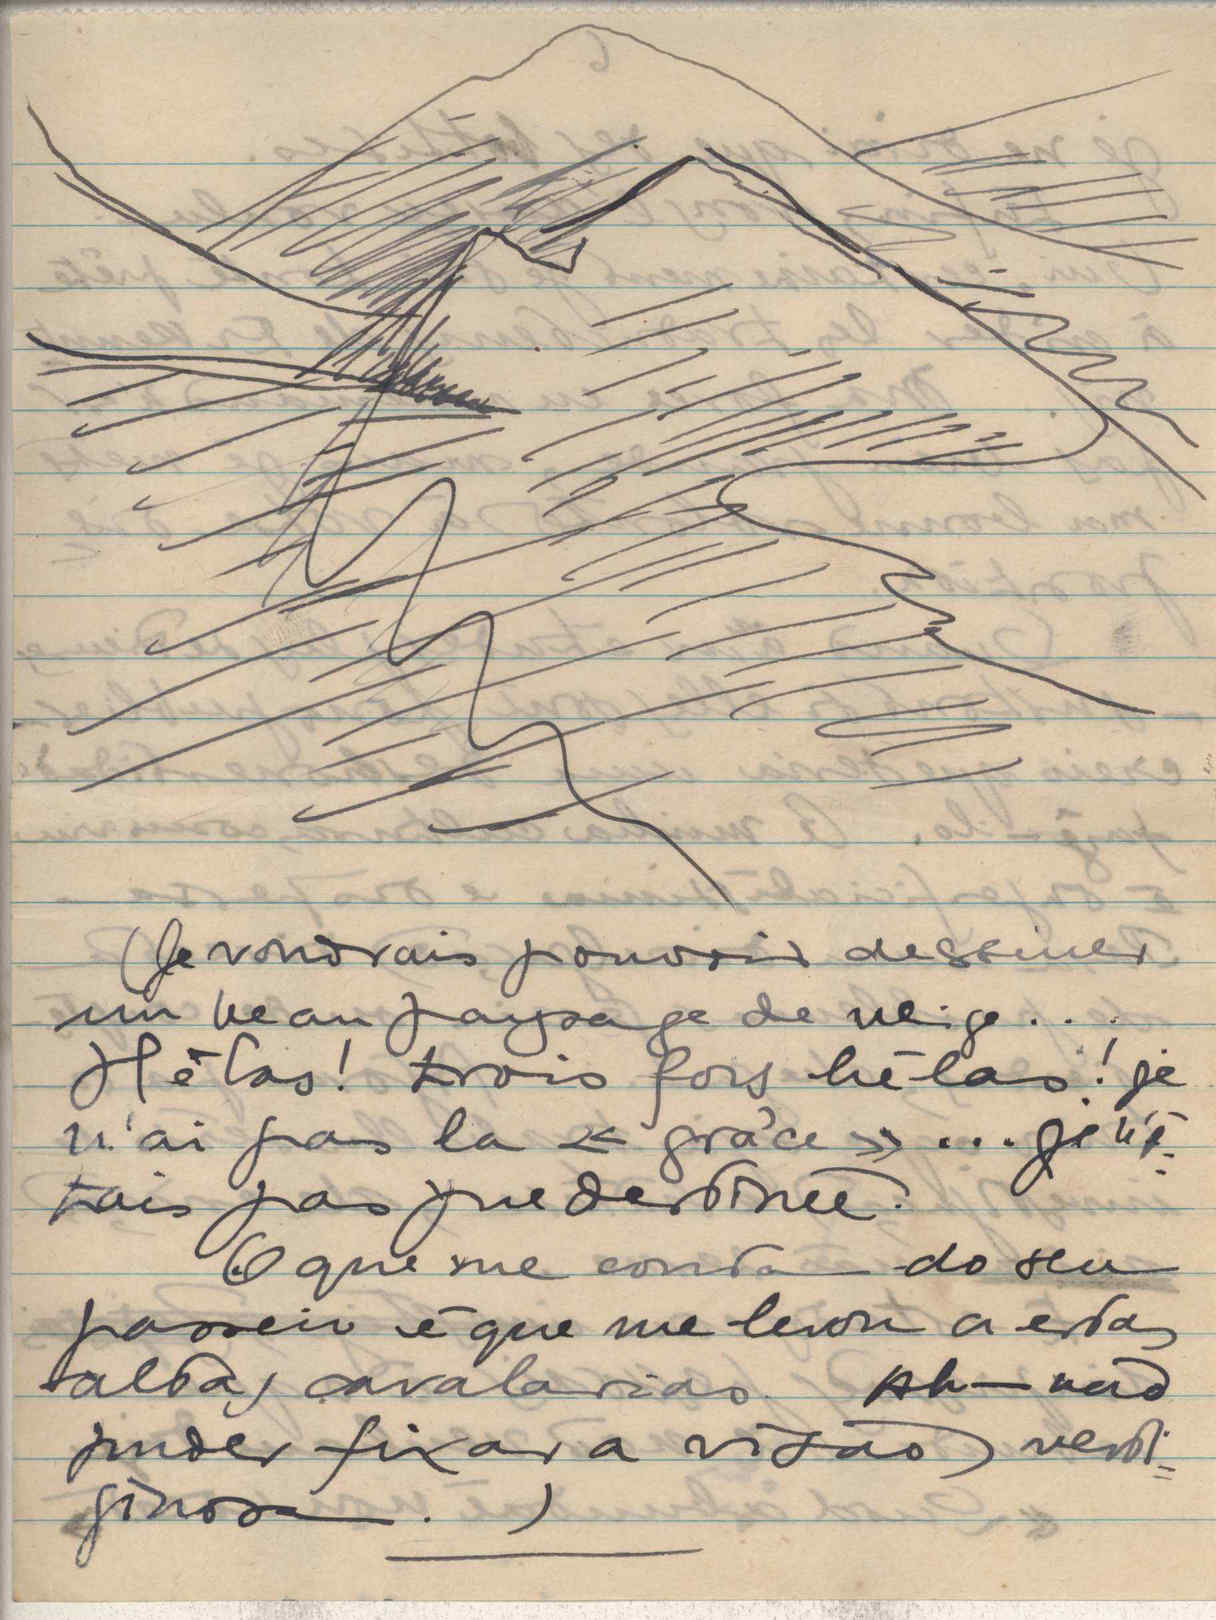 (Je voudrais pouvoir dessiner
un beau paysage de neige....
Hélas! trois fois hélas! je
n'ai pas la « grâce »... je n'é-
tais pas predestinée.
O que me conta do seu
passeio é que me levou a estas
altas cavalarias. Ah — não
puder fixar a visão verti-
ginosa. )